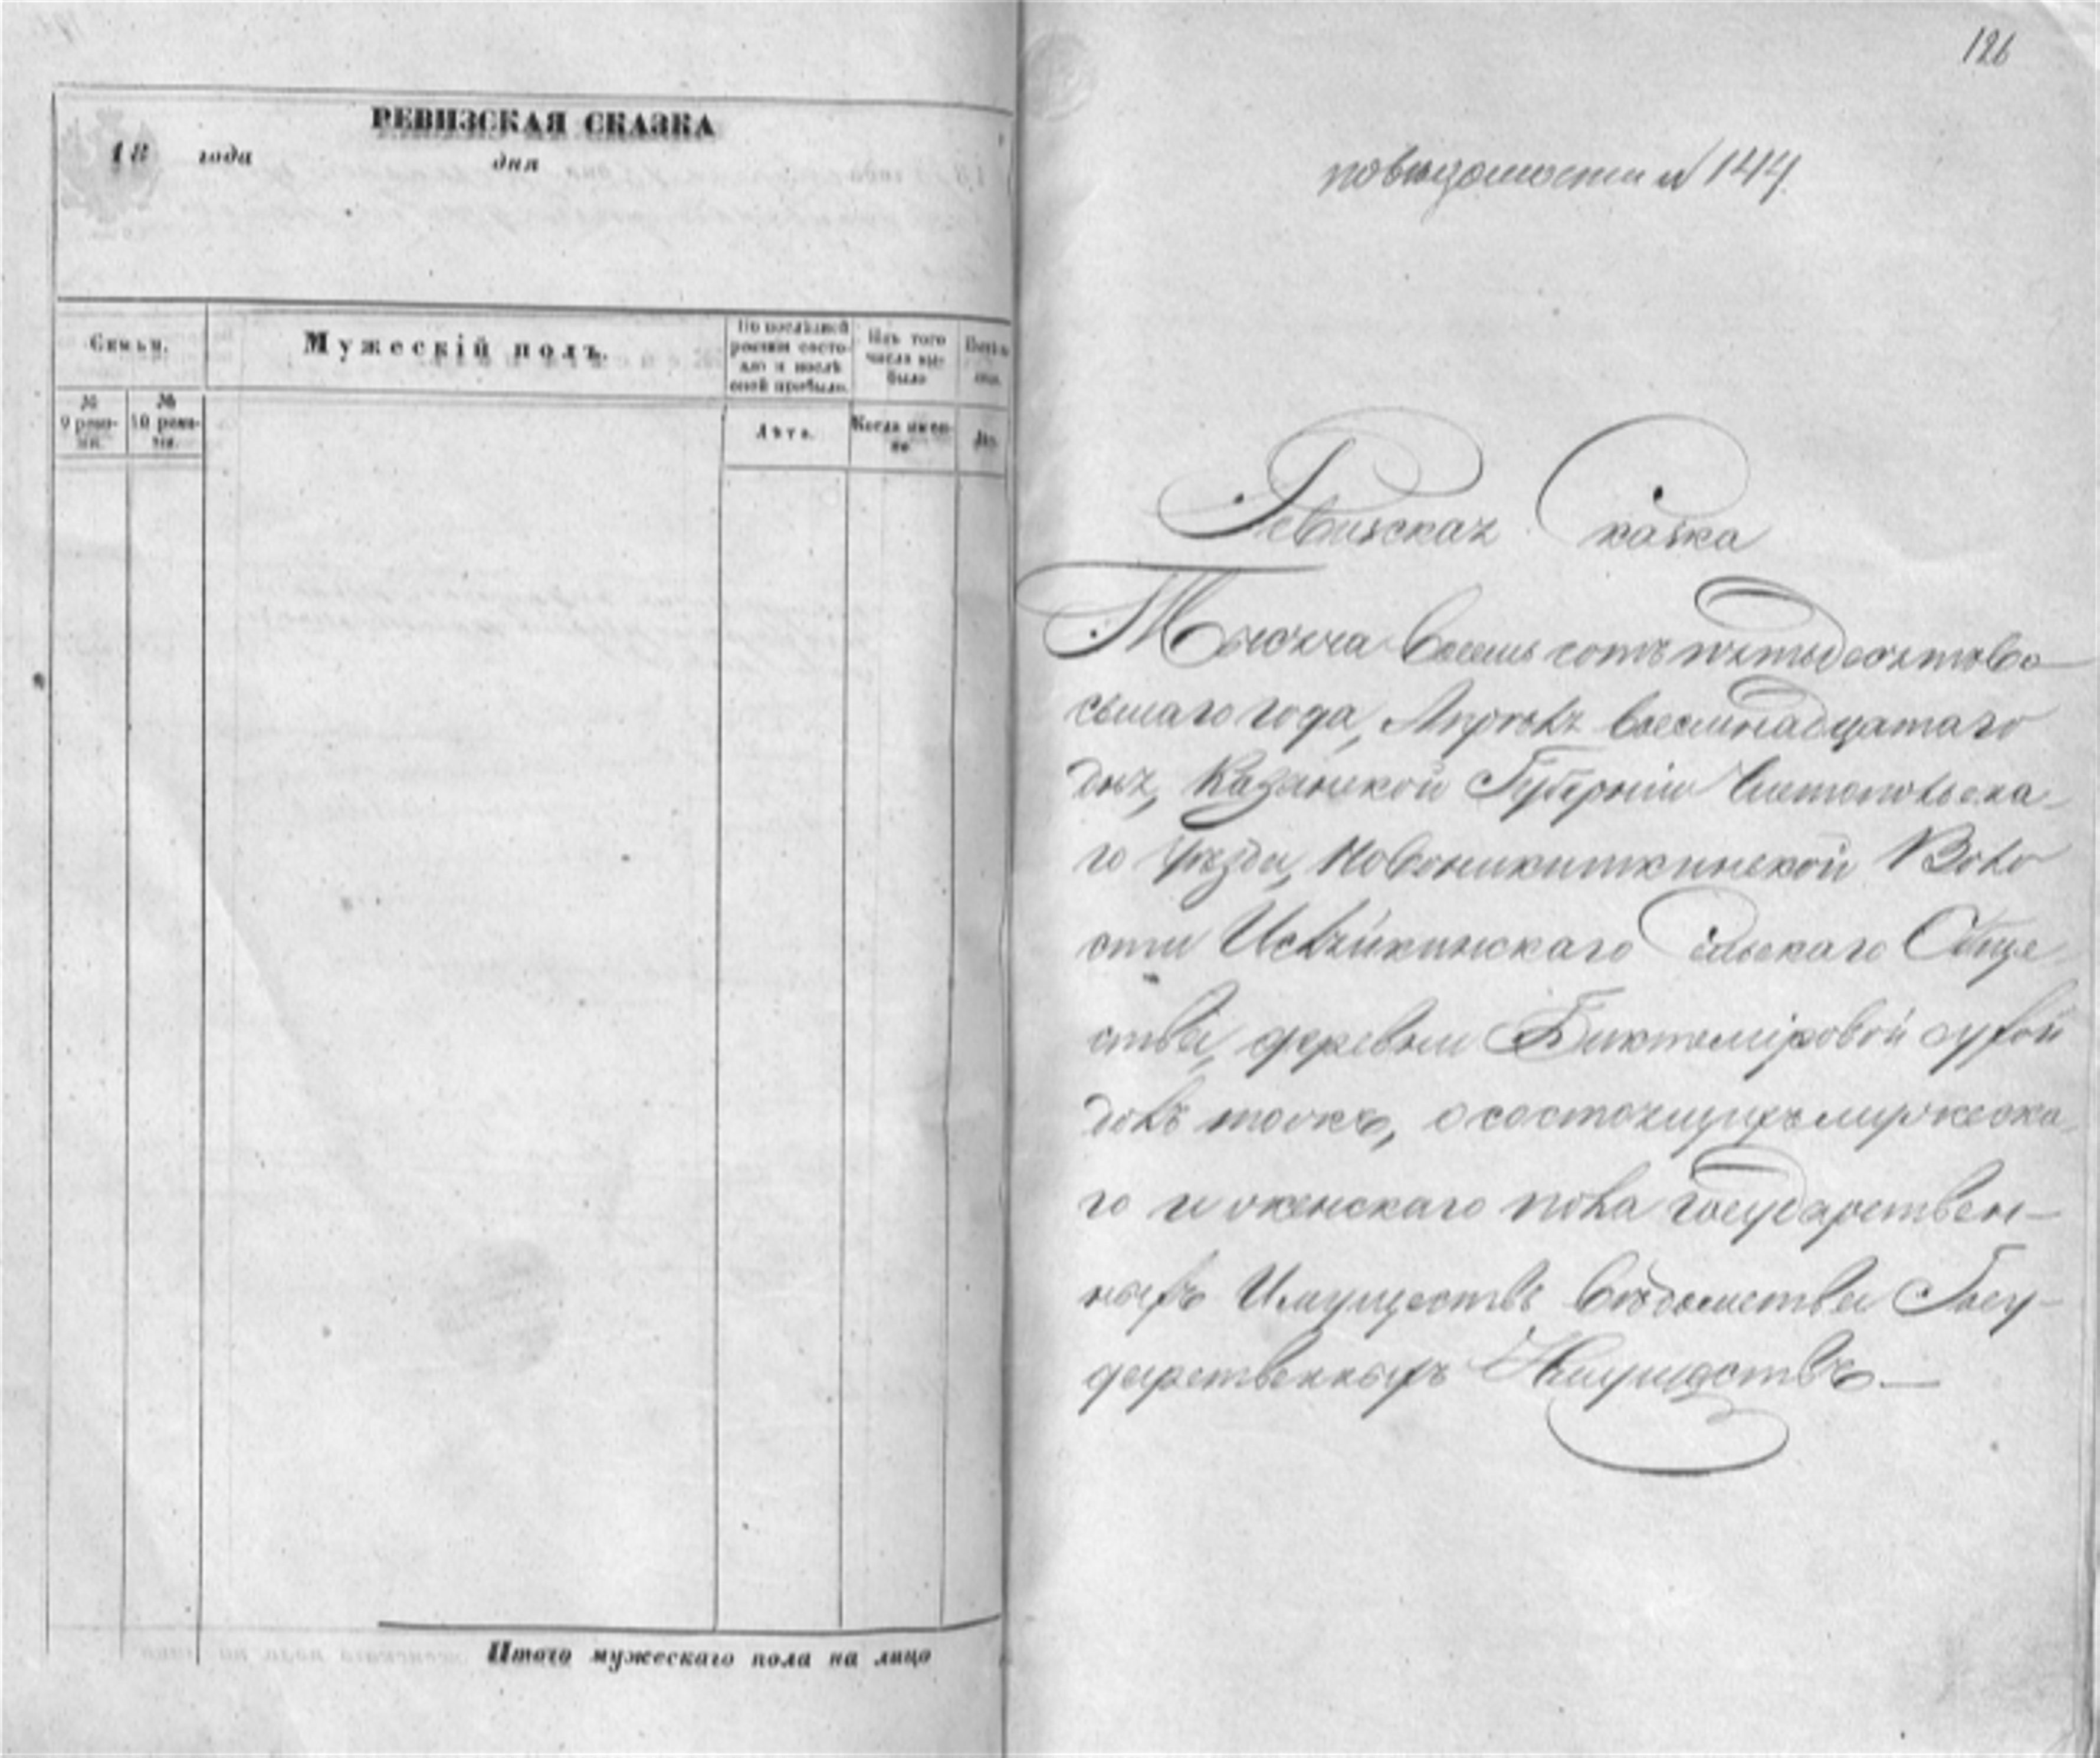 РЕВИЗСКАЯ СКАЗКА
18 года дня
Семьи.
Мужескій полъ.
По послѣдней ревизіи состояло и послѣ оной прибыло.
Изъ того числа выбыло
№ 9 ревизіи.
№ 10 ревизіи.
Лѣта.
Когда именно
Итого мужескаго пола на лицо
126
по вѣдомости № 144
Ревизская Сказка
Тысяча восемь сотъ пятьдесятъ во
сьмаго года, Апрѣля восемнадцатаго
дня, Казанской Губерніи Чистопольска-
го Уѣзда, Новоникиткинской Воло
сти Исляйкинскаго Сельскаго Обще
ства, деревни Биктеміровой сухой
долъ тожъ, о состоящихъ мужеска-
го и женскаго пола государствен-
ныхъ Имуществъ вѣдомства Госу-
дарственныхъ Имуществъ